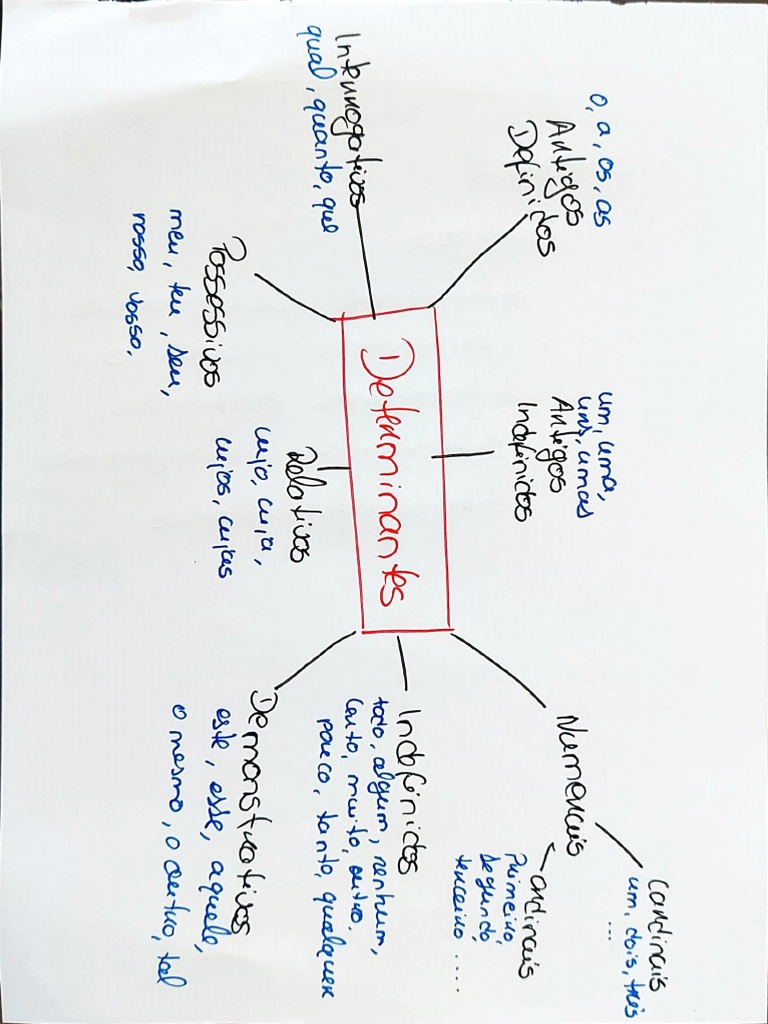 o, a, os, as
Artigos
Definidos
um, uma,
uns, umas
Artigos
Indefinidos
Numerais
Cardinais
um, dois, três
...
ordinais
Primeiro,
segundo,
terceiro ....
Interrogativos
qual, quanto, que
Determinantes
Indefinidos
todo, algum, nenhum,
certo, muito, outro,
pouco, tanto, qualquer
Possessivos
meu, teu, seu,
nosso, vosso,
Relativos
cujo, cuja,
cujos, cujas
Demonstrativos
este, esse, aquele,
o mesmo, o outro, tal